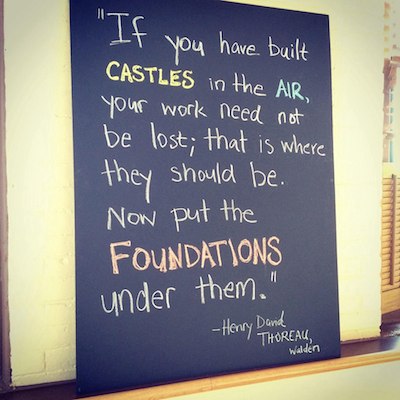 "If you have built
CASTLES in the AIR,
your work need not
be lost; that is where
they should be.
Now put the
FOUNDATIONS
under them."
-Henry David
THOREAU,
Walden